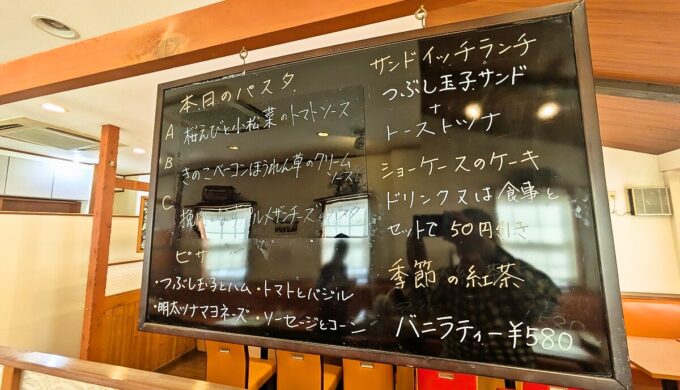 本日のパスタ
A 桜えびと小松菜のトマトソース
B きのこベーコンほうれん草のクリームソース
C 挽肉 パルメザンチーズのパスタ
ピザ
・つぶし玉子とハム・トマトとバジル
・明太ツナマヨネーズ・ソーセージとコーン
サンドイッチランチ
つぶし玉子サンド
+
トーストツナ
ショーケースのケーキ
ドリンク又は食事と
セットで 50円引き
季節の紅茶
バニラティー ¥580